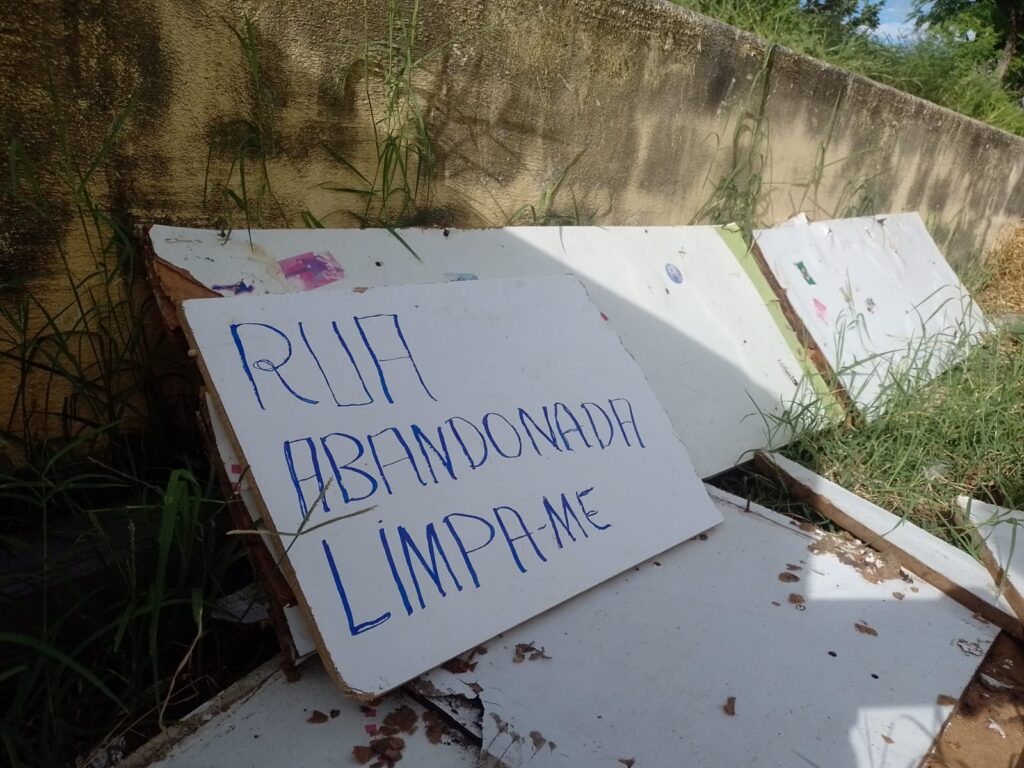 RUA
ABANDONADA
LIMPA-ME